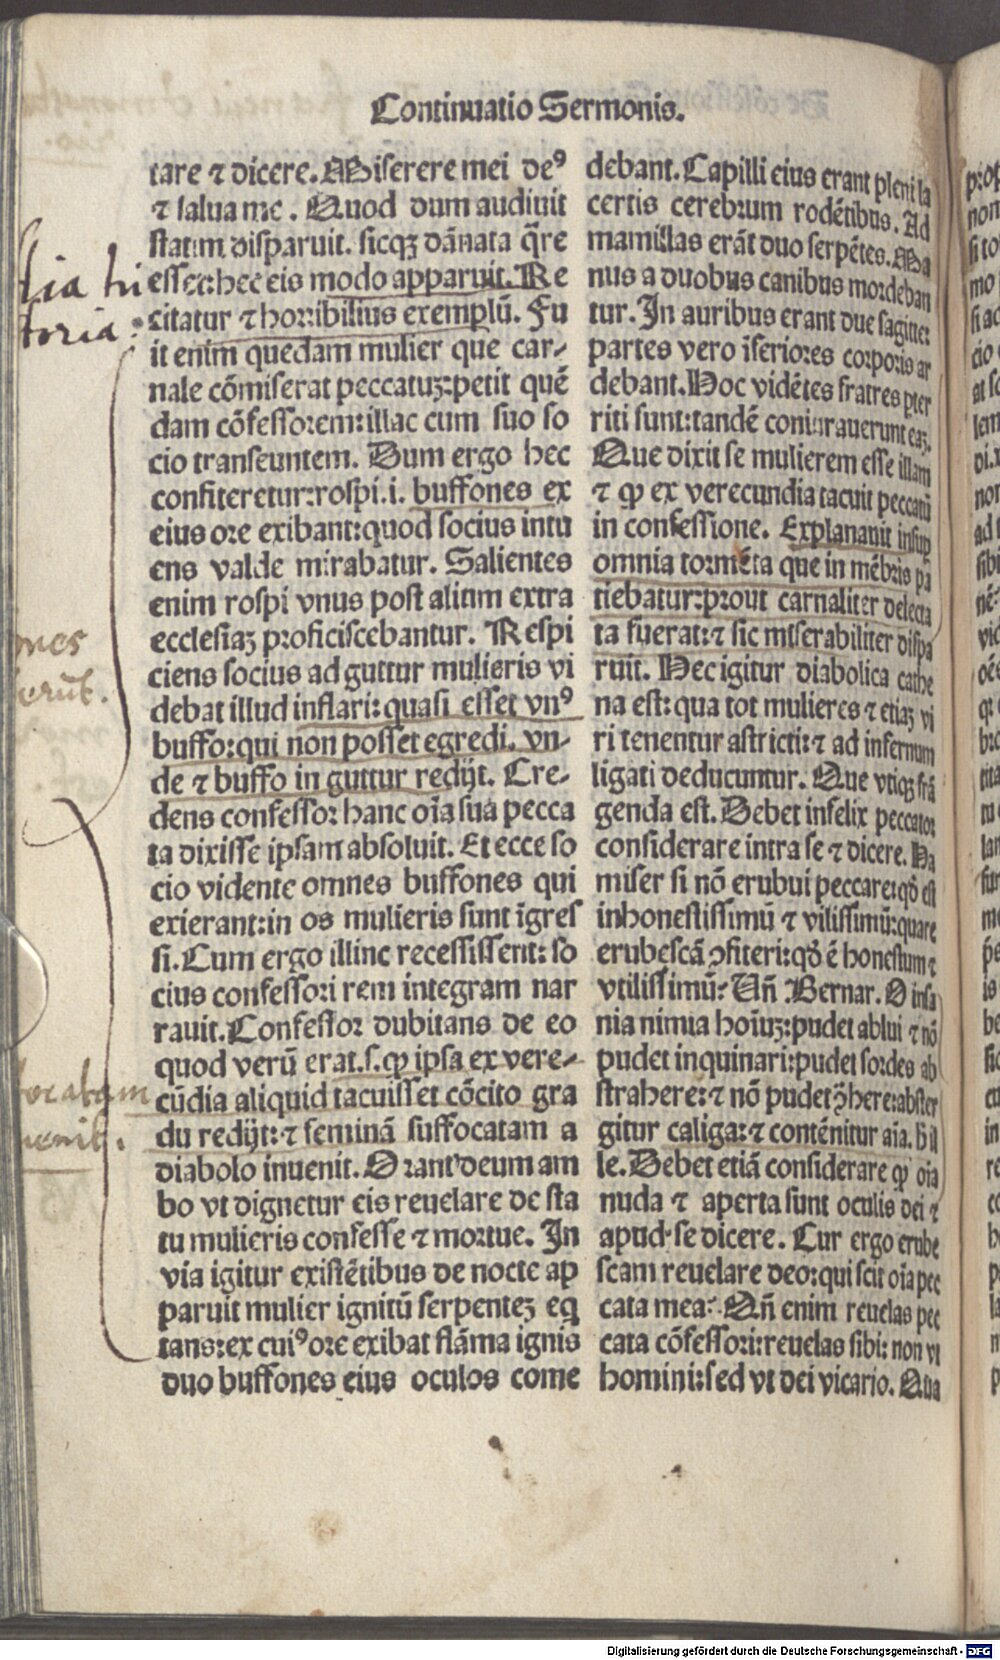 Continuatio Sermonis.
tare ⁊ dicere. Miserere mei deꝰ
⁊ salua me. Quod dum audiuit
statim disparuit. sicqꝫ dānata q̄re
esset: hec eis modo apparuit. Re
citatur ⁊ horribilius exemplū. Fu
it enim quedam mulier que car-
nale cōmiserat peccatuꝫ: petit quē
dam cōfessorem: illac cum suo so
cio transeuntem. Dum ergo hec
confiteretur: rospi .i. buffones ex
eius ore exibant: quod socius intu
ens valde mirabatur. Salientes
enim rospi vnus post alium extra
ecclesiaꝫ proficiscebantur. Respi
ciens socius ad guttur mulieris vi
debat illud inflari: quasi esset vnꝰ
buffo: qui non posset egredi. vn-
de ⁊ buffo in guttur redijt. Cre-
dens confessor hanc oīa sua pecca
ta dixisse ipsam absoluit. Et ecce so
cio vidente omnes buffones qui
exierant: in os mulieris sunt īgres
si. Cum ergo illinc recessissent: so
cius confessori rem integram nar
rauit. Confessor dubitans de eo
quod verū erat .s. ꝙ ipsa ex vere-
cūdia aliquid tacuisset cōcito gra
du redijt: ⁊ feminā suffocatam a
diabolo inuenit. Orant deum am
bo vt dignetur eis reuelare de sta
tu mulieris confesse ⁊ mortue. In
via igitur existētibus de nocte ap
paruit mulier ignitū serpenteꝫ eq
tans: ex cuiꝰ ore exibat flāma ignis
duo buffones eius oculos come
debant. Capilli eius erant pleni la
certis cerebrum rodētibus. Ad
mamillas erāt duo serpētes. Ma
nus a duobus canibus mordeban
tur. In auribus erant due sagitte:
partes vero īferiores corporis ar
debant. Hoc vidētes fratres pter
riti sunt: tandē coniurauerunt eaꝫ.
Que dixit se mulierem esse illam
⁊ ꝙ ex verecundia tacuit peccatū
in confessione. Explanauit insup
omnia tormēta que in mēbris pa
tiebatur: prout carnaliter delecta
ta fuerat: ⁊ sic miserabiliter dispa
ruit. Hec igitur diabolica cathe
na est: qua tot mulieres ⁊ etiaꝫ vi
ri tenentur astricti: ⁊ ad infernum
ligati deducuntur. Que vtiqꝫ frā
genda est. Debet infelix peccator
considerare intra se ⁊ dicere. Ha
miser si nō erubui peccare: qď est
inhonestissimū ⁊ vilissimū: quare
erubescā ↄfiteri: qď ē honestum ⁊
vtilissimū? Uñ Bernar. O insa
nia nimia hoīuꝫ: pudet ablui ⁊ nō
pudet inquinari: pudet sordes ab
strahere: ⁊ nō pudet ↄ̄here: abster
gitur caliga: ⁊ contēnitur aīa. h il
le. Debet etiā considerare ꝙ oīa
nuda ⁊ aperta sunt oculis dei ⁊
apud se dicere. Cur ergo erube
scam reuelare deo: qui scit oīa pec
cata mea? Qñ enim reuelas pec
cata cōfessori: reuelas sibi: non vt
homini: sed vt dei vicario. Qua